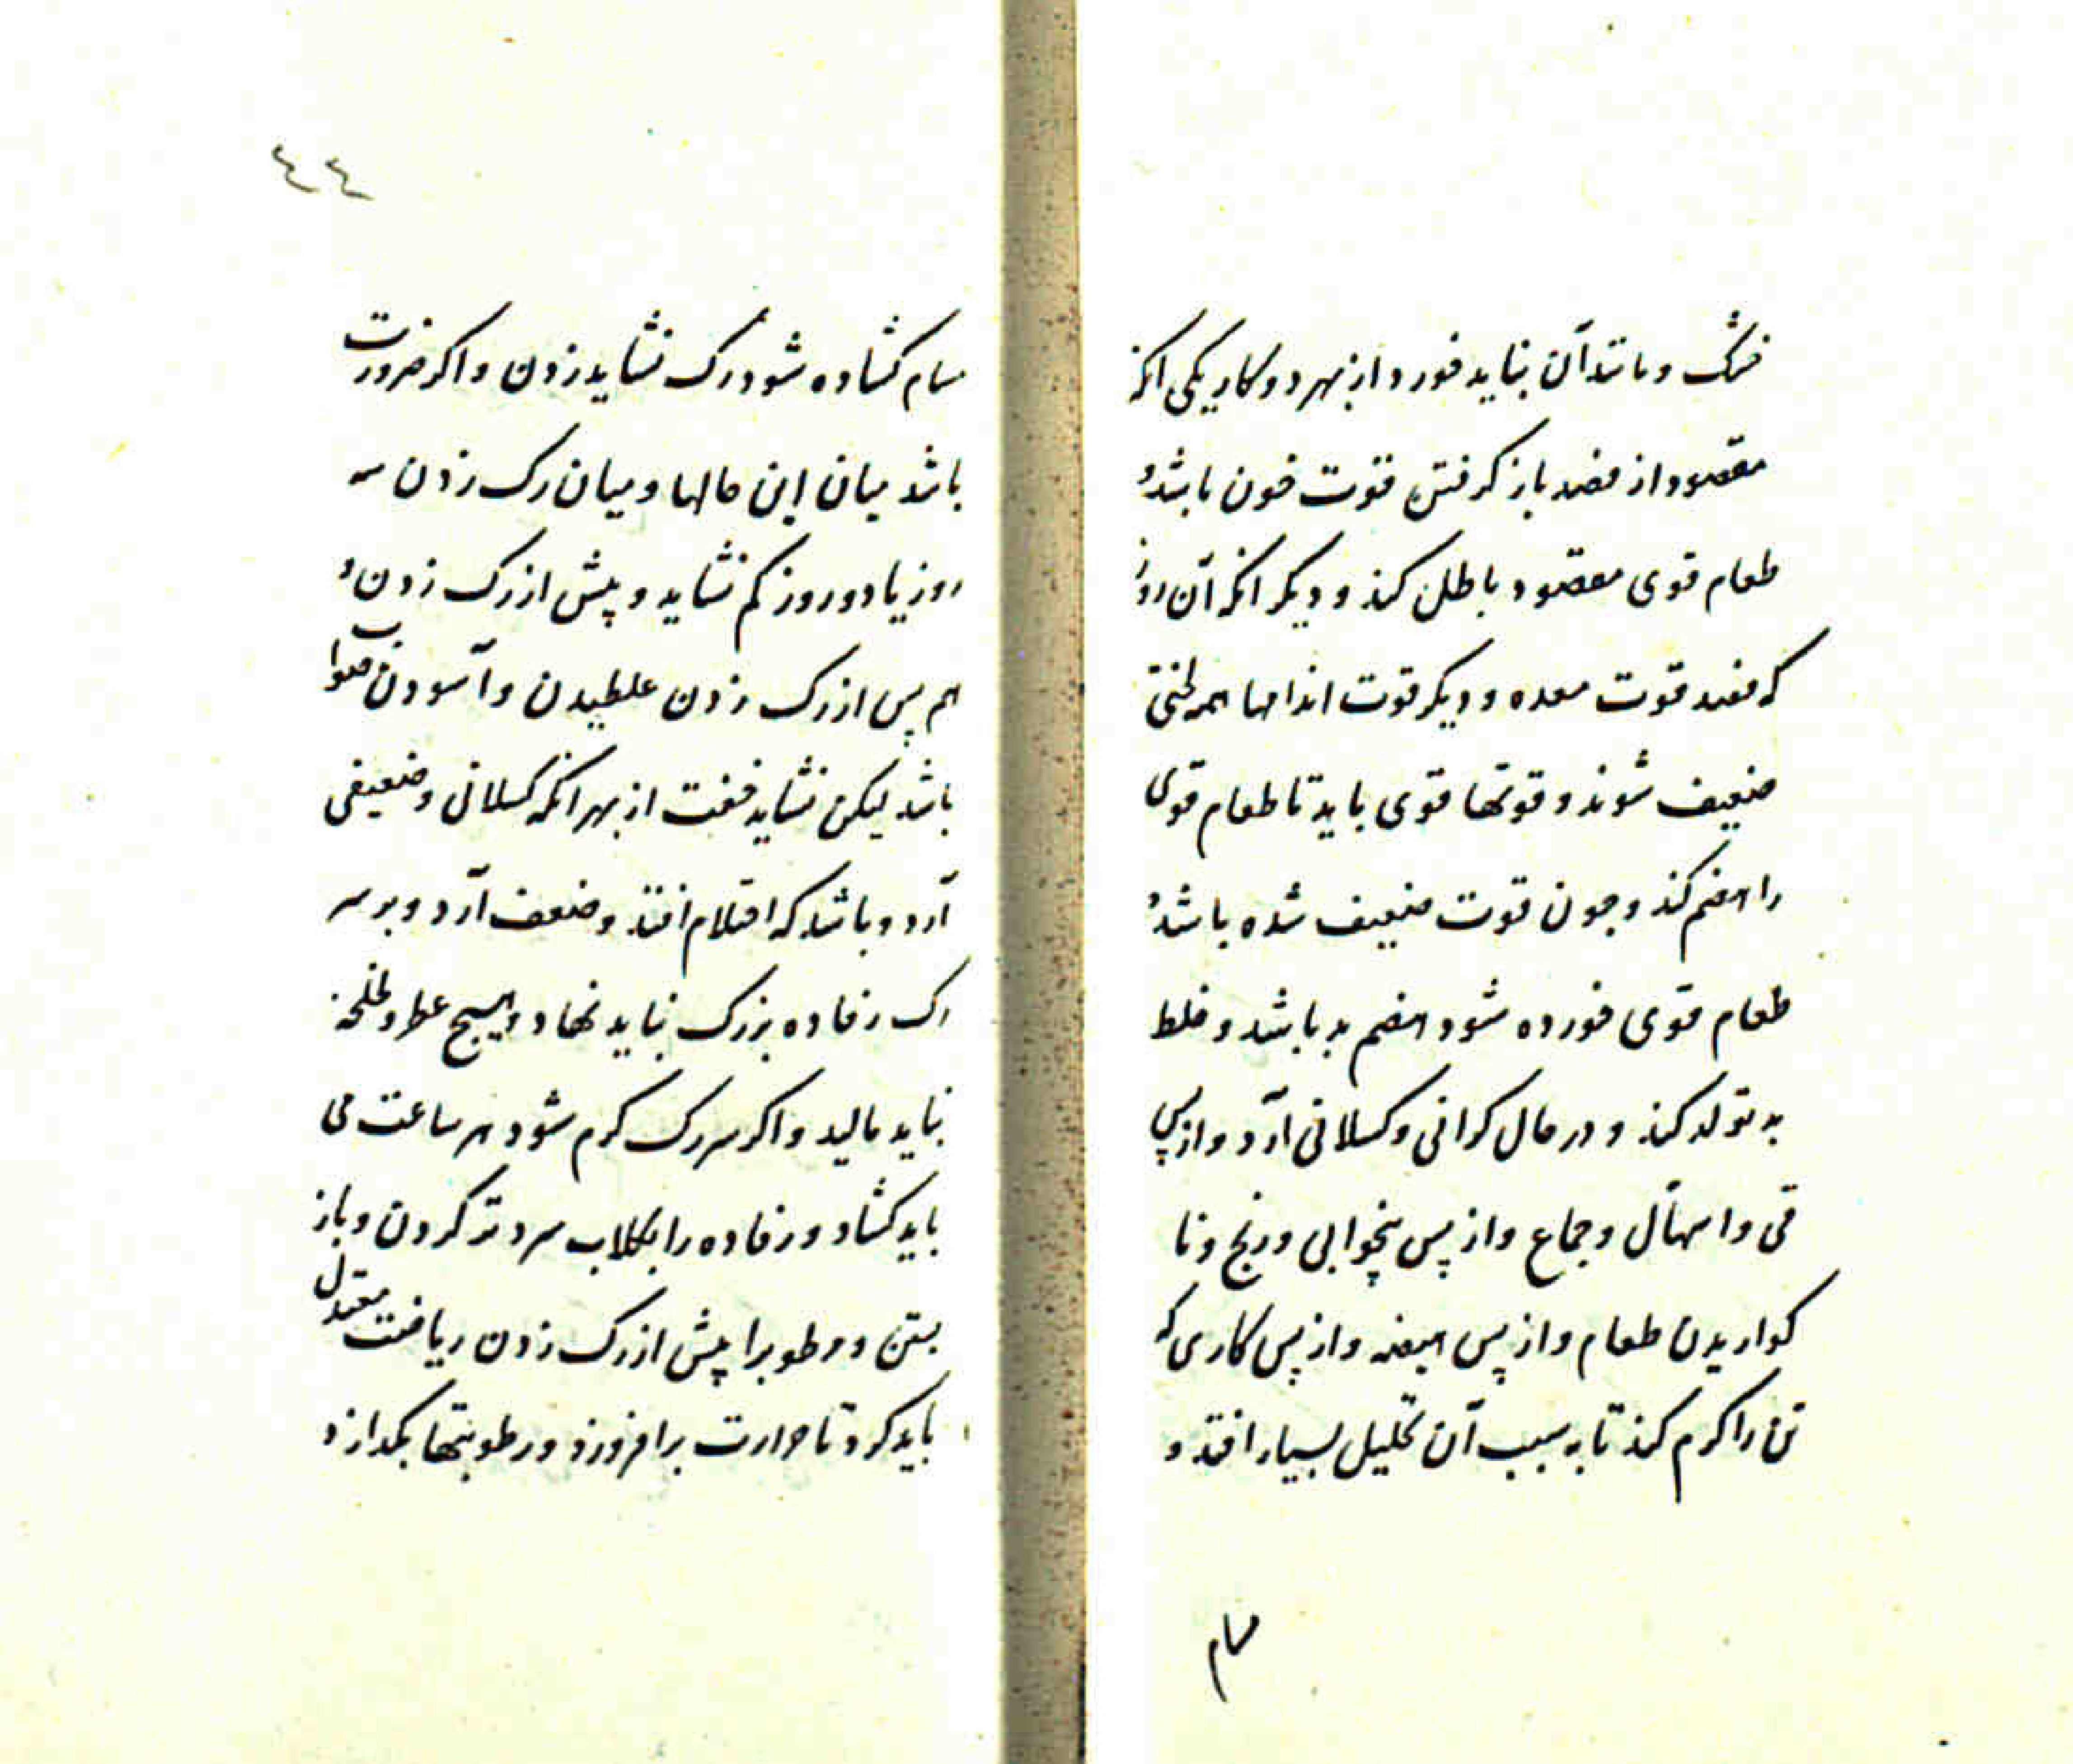 خرک و مانند آن نباید خورد از بهر دو کار یکی انکه
مقصود از فصد باز کرفتن قوت خون باشد و
طعام قوی مقصود باطل کند و دیکر انکه آن روز
که فصد قوت معده و دیکر قوت اندامها همه لختی
ضعیف شوند و قوتها قوی باید تا طعام قوی
را هضم کند و چون قوت ضعیف شده باشد و
طعام قوی خورده شود هضم بد باشد و خلط
بد تولد کند و در حال کرانی و کسلانی آرد و از پس
قی و اسهال و جماع و از پس بیخوابی و رنج و نا
کواریدن طعام و از پس هیضه و از پس کاری که
تن را کرم کند تا به سبب آن تحلیل بسیار افتد و
مسام
٤٤
مسام کشاده شود رک نشاید زدن و اکر ضرورت
باشد میان این حالها و میان رک زدن سه
روز یا دو روز کم نشاید و پیش از رک زدن و
هم پس از رک زدن غلطیدن و آسودن صواب
باشد لیکن نشاید خفت از بهر انکه کسلانی و ضعیفی
آرد و باشد که احتلام افتد و ضعف آرد و بر سر
رک رفاده بزرک نباید نهاد و هیچ عطر و لخلخه
نباید مالید و اکر سر رک کرم شود هر ساعت می
باید کشاد و رفاده را بکلاب سرد تر کردن و باز
بستن و مرطوبرا پیش از رک زدن ریاضت معتدل
باید کرد تا حرارت برافروزد و رطوبتها بکدازد